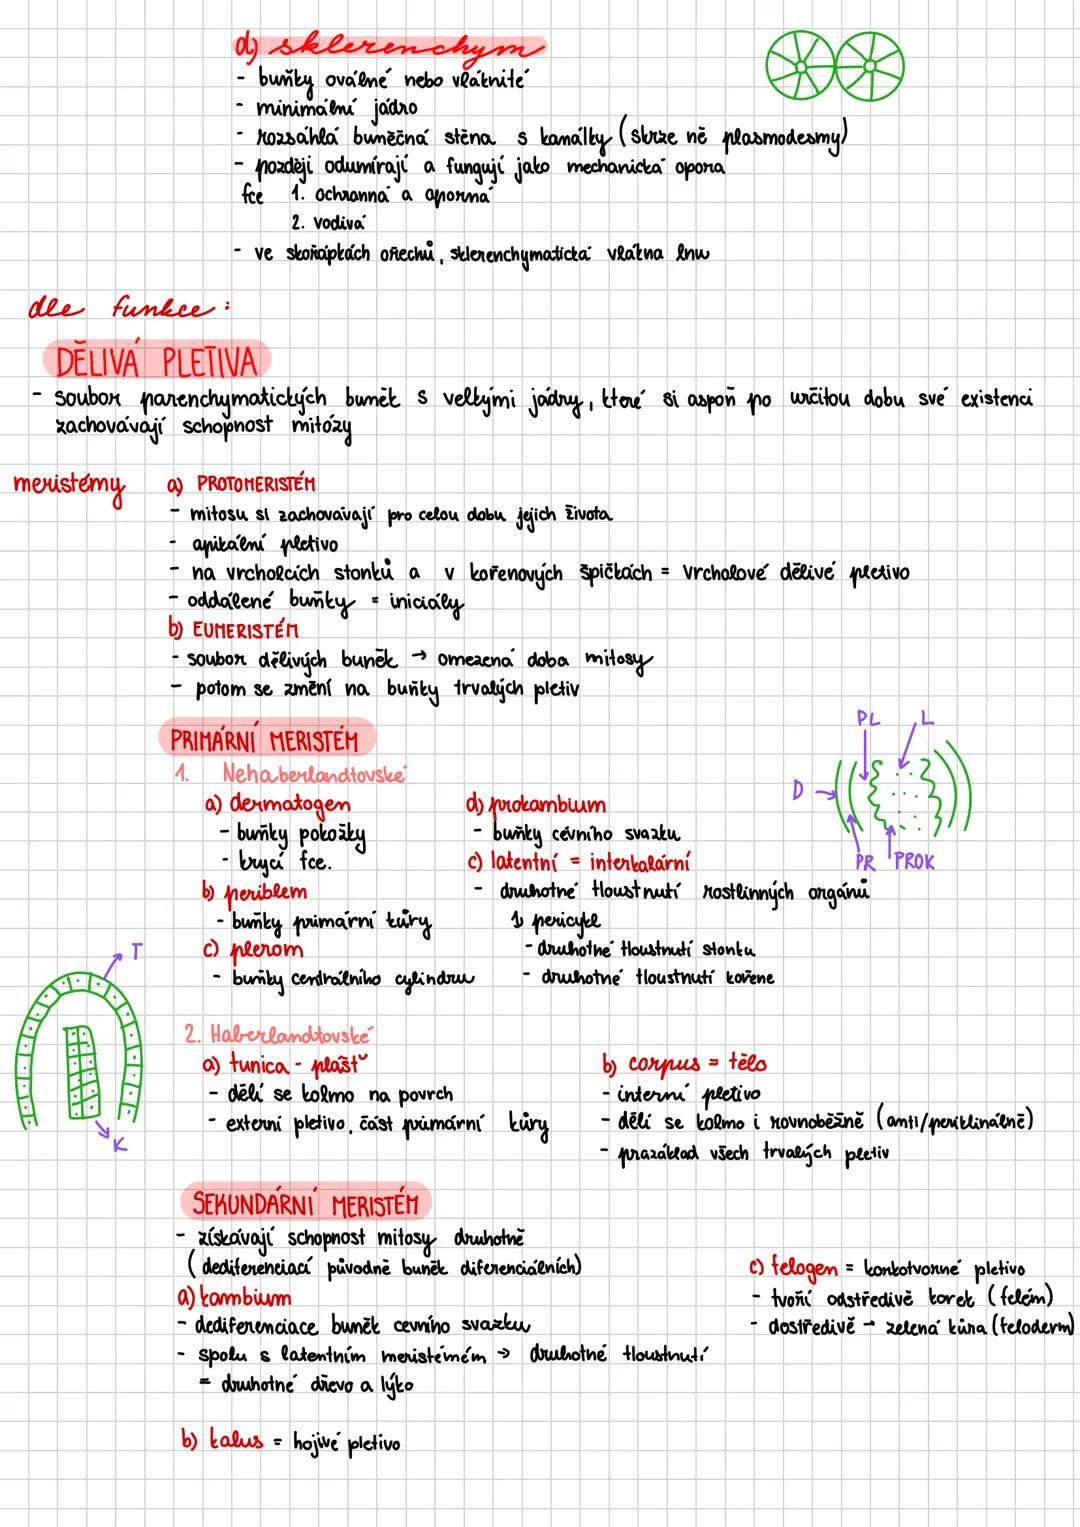 d) sklerenchym
- buňky oválné nebo vláknité
- minimální jádro
- rozsáhlá buněčná stěna s kanálky (skrze ně plasmodesmy)
- později odumírají a fungují jako mechanická opora
fce 1. ochranná a oporná
2. vodivá
- ve skořápkách ořechů, sklerenchymatická vlákna lnu
dle funkce:
DĚLIVÁ PLETIVA
- soubor parenchymatických buněk s velkými jádry, které si aspoň po určitou dobu své existenci
zachovávají schopnost mitózy
meristémy
a) PROTOMERISTÉM
- mitosu si zachovávají pro celou dobu jejich života
- apikální pletivo
- na vrcholcích stonků a v kořenových špičkách = vrcholové dělivé pletivo
- oddálené buňky = iniciály
b) EUMERISTÉM
- soubor dělivých buněk → omezená doba mitosy
- potom se změní na buňky trvalých pletiv
PRIMÁRNÍ MERISTÉM
1. Nehaberlandtovské
a) dermatogen
- buňky pokožky
- krycí fce.
b) periblem
- buňky primární kůry
c) plerom
- buňky centrálního cylindru
d) prokambium
- buňky cévního svazku
c) latentní = interkalární
- druhotné tloustnutí rostlinných orgánů
1) pericykl
- druhotné tloustnutí stonku
- druhotné tloustnutí kořene
PL L
D
PR PROK
T
K
2. Haberlandtovské
a) tunica - plášť
- dělí se kolmo na povrch
- externí pletivo, část primární kůry
b) corpus = tělo
- interní pletivo
- dělí se kolmo i rovnoběžně (anti/periklinálně)
- prazáklad všech trvalých pletiv
SEKUNDÁRNÍ MERISTÉM
- získávají schopnost mitosy druhotně
(dediferenciací původně buněk diferenciálních)
a) kambium
- dediferenciace buněk cevního svazku
- spolu s latentním meristémém → druhotné tloustnutí
= druhotné dřevo a lýko
b) kalus = hojivé pletivo
c) felogen = korkotvorné pletivo
- tvoří odstředivě korek (felém)
- dostředivě → zelená kůra (feloderm)